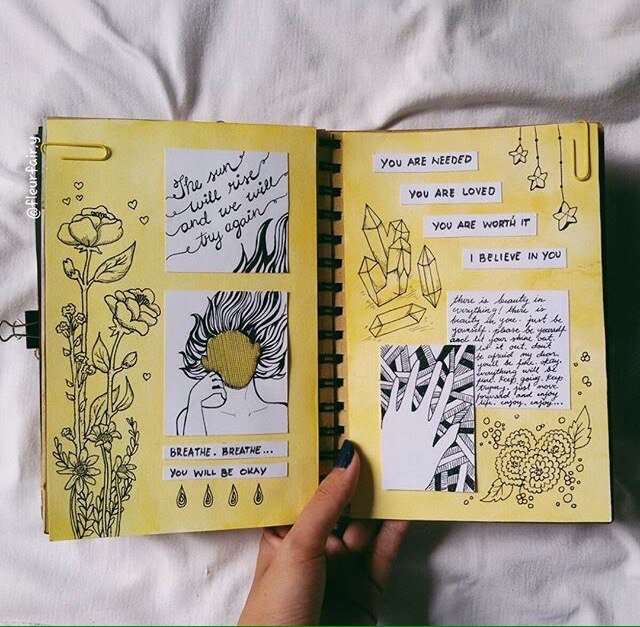 @fleurfair.y
The sun
will rise
and we will
try again
BREATHE. BREATHE...
YOU WILL BE OKAY
YOU ARE NEEDED
YOU ARE LOVED
YOU ARE WORTH IT
I BELIEVE IN YOU
there is beauty in
everything! there is
beauty in you. just be
yourself. please be yourself
and let your shine out.
let it out. don't
be afraid my dear.
you'll be fine. okay.
everything will be
fine. keep going. keep
trying. just move
forward and enjoy
life. enjoy. enjoy...